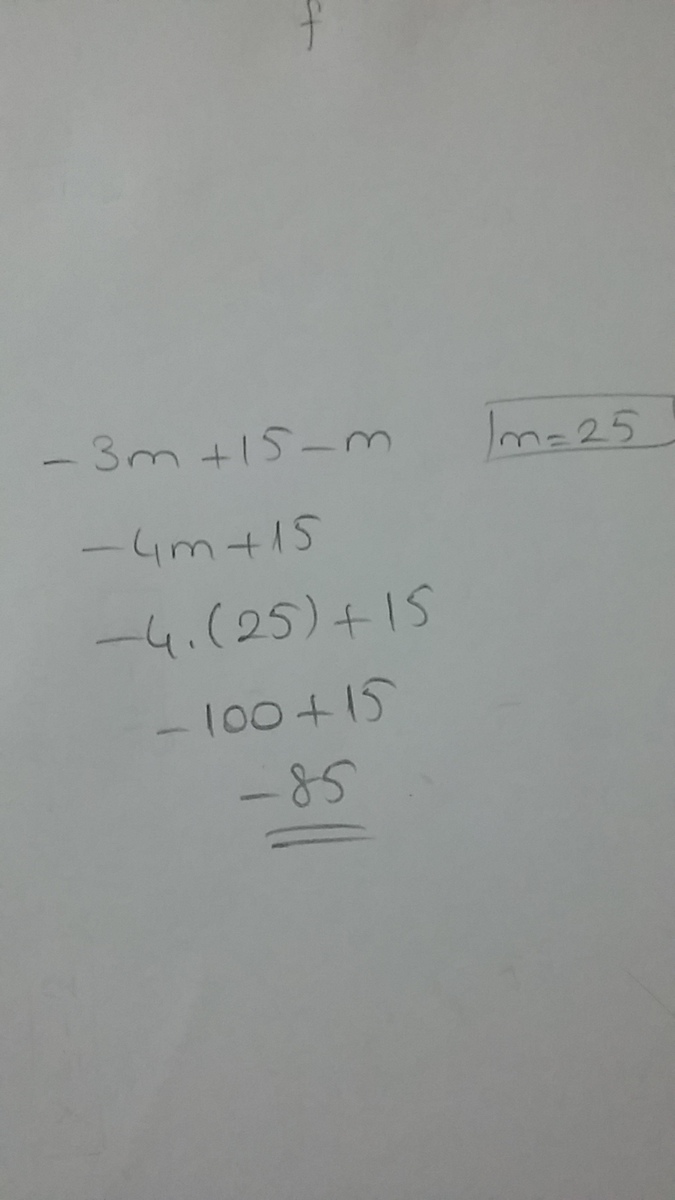 f
-3m+15-m
m=25
-4m+15
-4.(25)+15
-100+15
-85